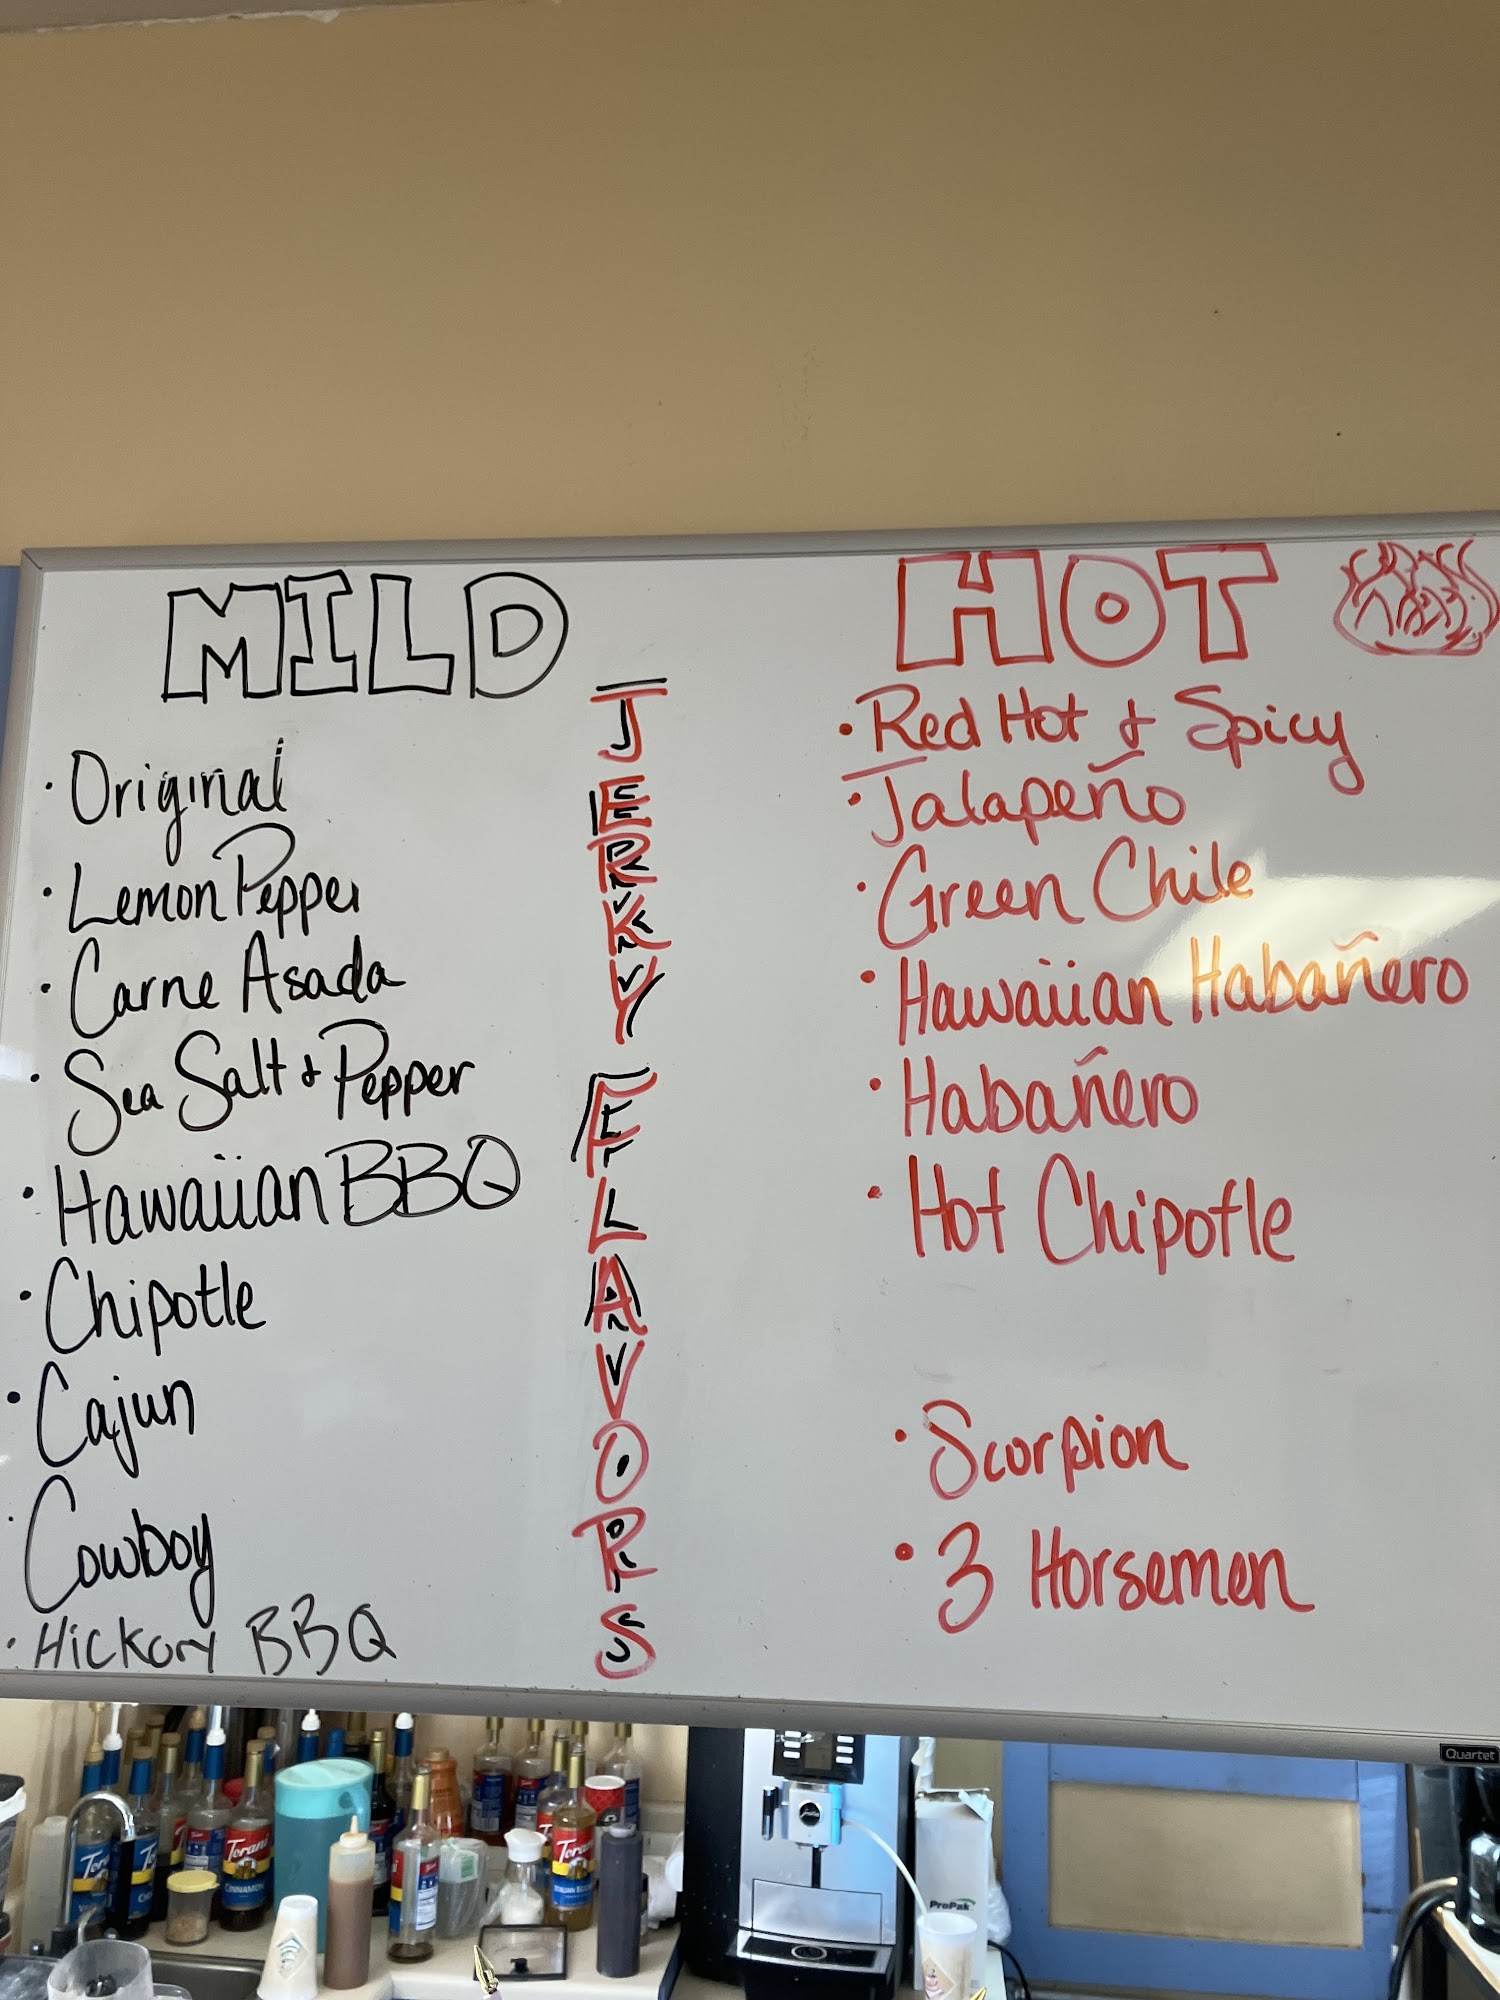 MILD
· Original
· Lemon Pepper
· Carne Asada
· Sea Salt & Pepper
· Hawaiian BBQ
· Chipotle
· Cajun
· Cowboy
· Hickory BBQ
JERKY FLAVORS
HOT
· Red Hot & Spicy
· Jalapeño
· Green Chile
· Hawaiian Habañero
· Habañero
· Hot Chipotle
· Scorpion
· 3 Horsemen
Quartet
Torani
CINNAMON
Torani
ProPak